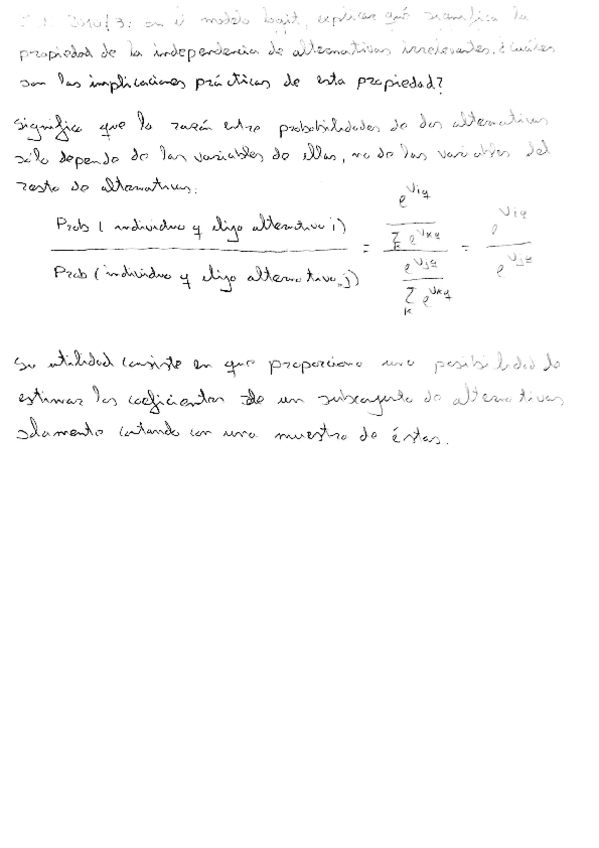 en el modelo logit, explicar qué significa la
propiedad de la independencia de alternativas irrelevantes. ¿Cuáles
son las implicaciones prácticas de esta propiedad?
Significa que la razón entre probabilidades de dos alternativas
sólo depende de las variables de ellas, no de las variables del
resto de alternativas:
Prob ( individuo q elija alternativa i) / Prob (individuo q elija alternativa j) = (e^Viq / Σk e^Vkq) / (e^Vjq / Σk e^Vkq) = e^Viq / e^Vjq
Su utilidad consiste en que proporciona una posibilidad de
estimar los coeficientes de un subconjunto de alternativas
solamente contando con una muestra de éstas.